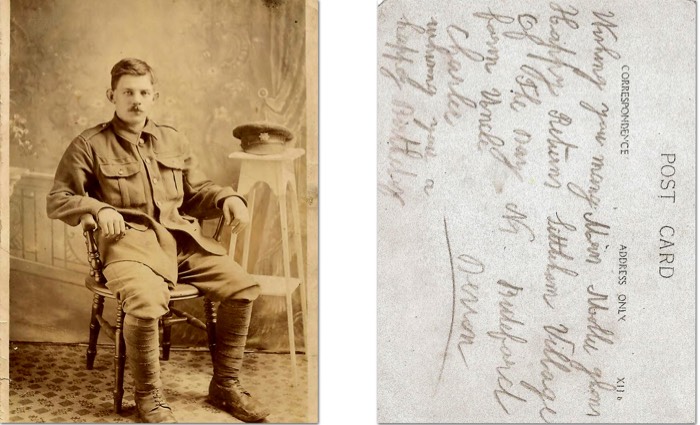 POST CARD
CORRESPONDENCE
ADDRESS ONLY
Wishing you many
Happy Returns
of the Day
from Uncle
Charlie
wishing you a
happy birthday
Miss Mollie
Littleham Village
Nr Bideford
Devon